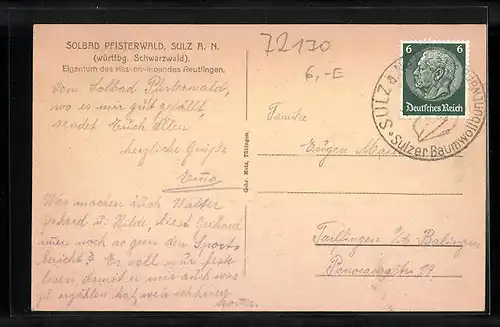 SOLBAD PFISTERWALD, SULZ A. N.
(württbg. Schwarzwald).
Eigentum des Kassenverbandes Reutlingen.
72170
6,-E
6 6
Deutsches Reich
SULZ a.
Sulzer Baumwollbunt
Vom Solbad Pfisterwald,
wo es mir gut gefällt,
sendet Euch Allen
herzliche Grüße
Emma
Was machen auch Walter
Gerhard u. Hilde, liest Gerhard
immer noch so gern den Sport-
bericht? Er soll nur
lesen damit er mir auch was
zu erzählen hat, wenn ich
Gebr. Metz, Tübingen
Familie
Eugen
Tailfingen b. Balingen
Panoramastr. 29.